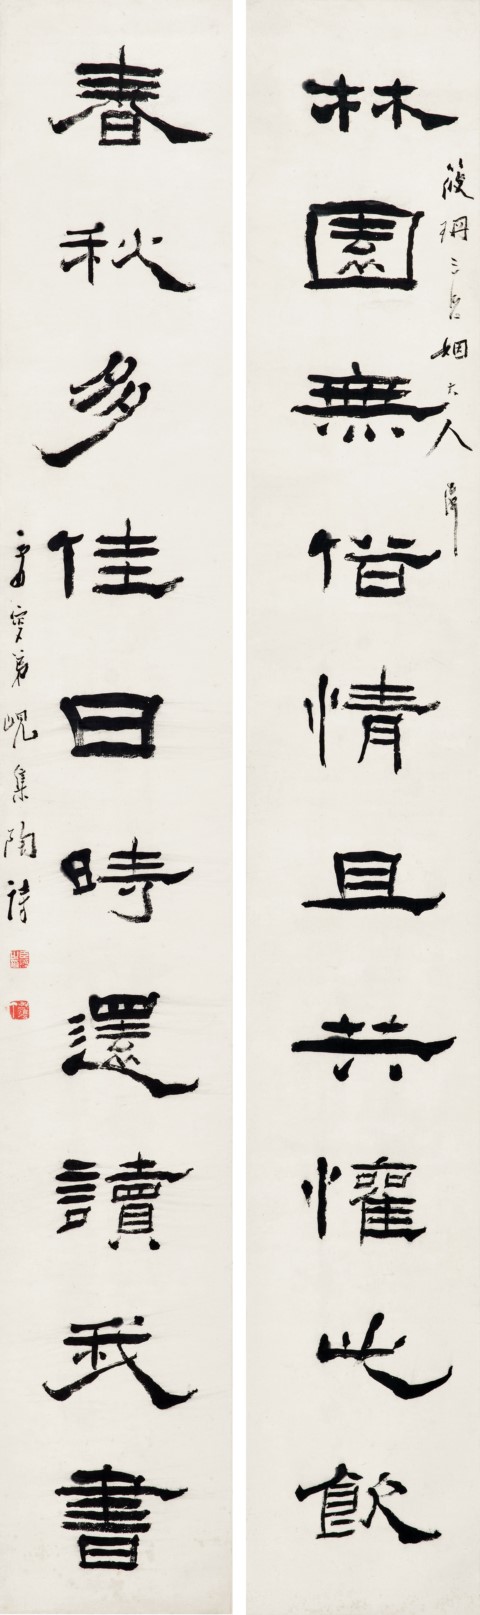 筱珊三兄姻大人
林園無俗情且共懽此飲
春秋多佳日時還讀我書
弟峴集陶詩